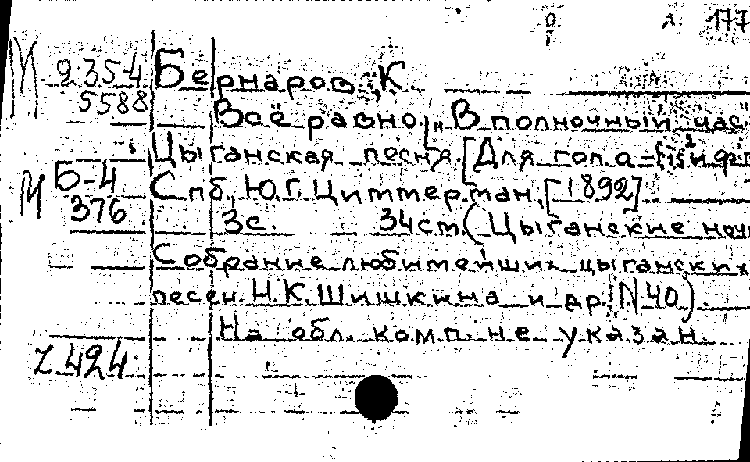 177
М 9 35-4 Бернаров, К
5588 Всё равно! „В полночный час
Цыганская песня. [Для гол. а-{is² и ф-п
М Б-4 Спб, Ю.Г. Циммерман, [1892]
376 3с. 34см. (Цыганские ночи
Собрание любимейших цыганских
песен Н.К. Шишкина и др. N 40)
На обл. комп. не указан.
Z 424